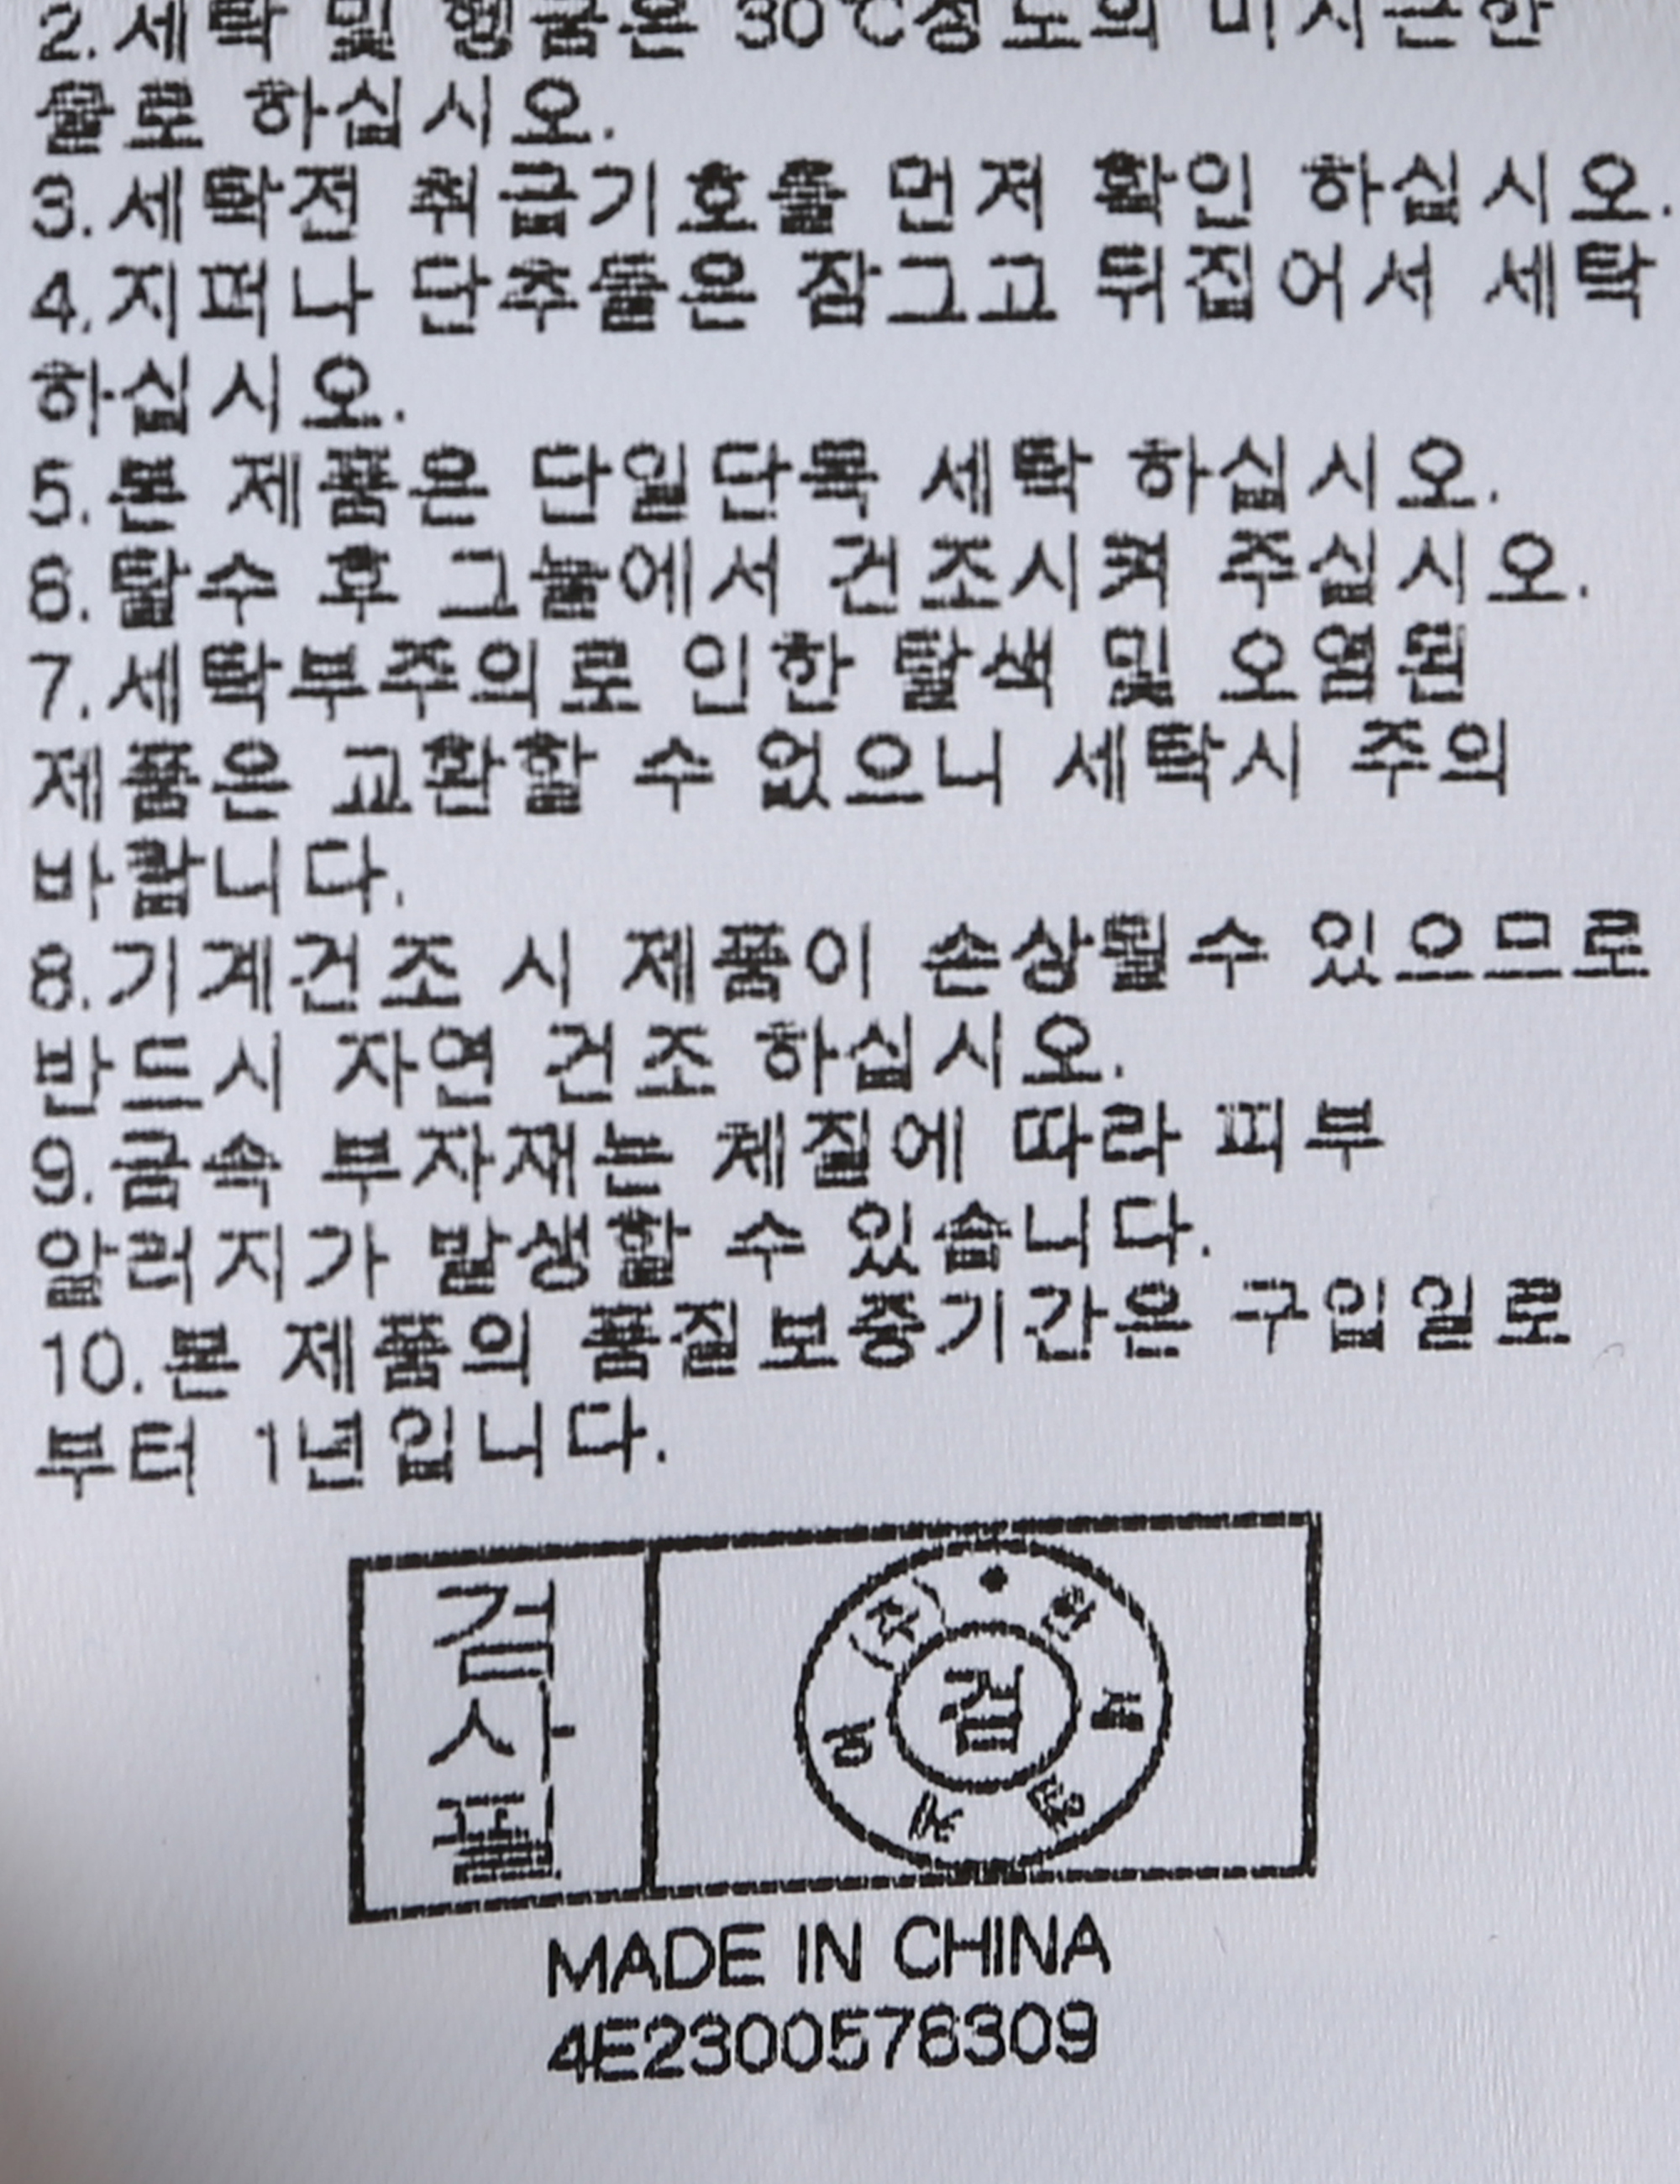 2.세탁 및 헹굼은 30℃정도의 미지근한
물로 하십시오.
3.세탁전 취급기호를 먼저 확인 하십시오.
4.지퍼나 단추들은 잠그고 뒤집어서 세탁
하십시오.
5.본 제품은 단일단독 세탁 하십시오.
6.탈수 후 그늘에서 건조시켜 주십시오.
7.세탁부주의로 인한 탈색 및 오염된
제품은 교환할 수 없으니 세탁시 주의
바랍니다.
8.기계건조 시 제품이 손상될수 있으므로
반드시 자연 건조 하십시오.
9.금속 부자재는 체질에 따라 피부
알러지가 발생할 수 있습니다.
10.본 제품의 품질보증기간은 구입일로
부터 1년입니다.
검사필
검
MADE IN CHINA
4E2300576309